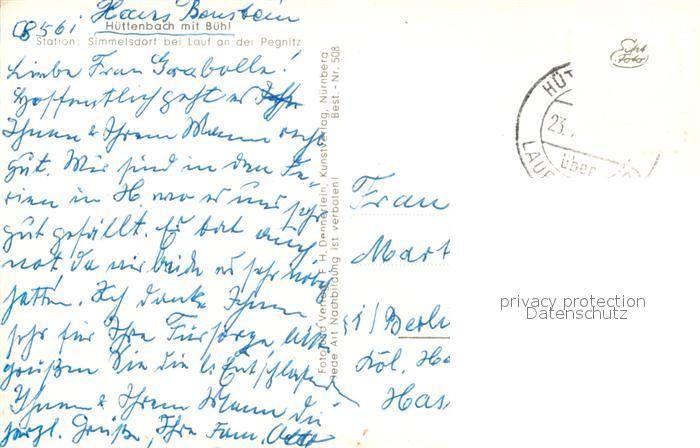 8561 Haus Bernstein
Hüttenbach mit Bühl
Station: Simmelsdorf bei Lauf an der Pegnitz
Liebe Frau Grabolle!
Hoffentlich geht es
Ihnen & Ihrem Mann recht
gut. Wir sind in den Fe-
rien in H. wo es uns sehr
gut gefällt. Es tat auch
not da wir beide es sehr nötig
hatten. Ich danke Ihnen
sehr für Ihre Fürsorge bitte
grüßen Sie die lb. Entschlafenen
Ihnen & Ihrem Mann die
herzl. Grüße, Ihre Fam. Otto
Foto und Verlag: F. H. Dennerlein, Kunstverlag, Nürnberg
Jede Art Nachbildung ist verboten! Best.-Nr. 508
Echt
Foto
HÜT
23.
über
LAUF
Frau
Mart
1/Berlin
Köl. He
Has
privacy protection
Datenschutz